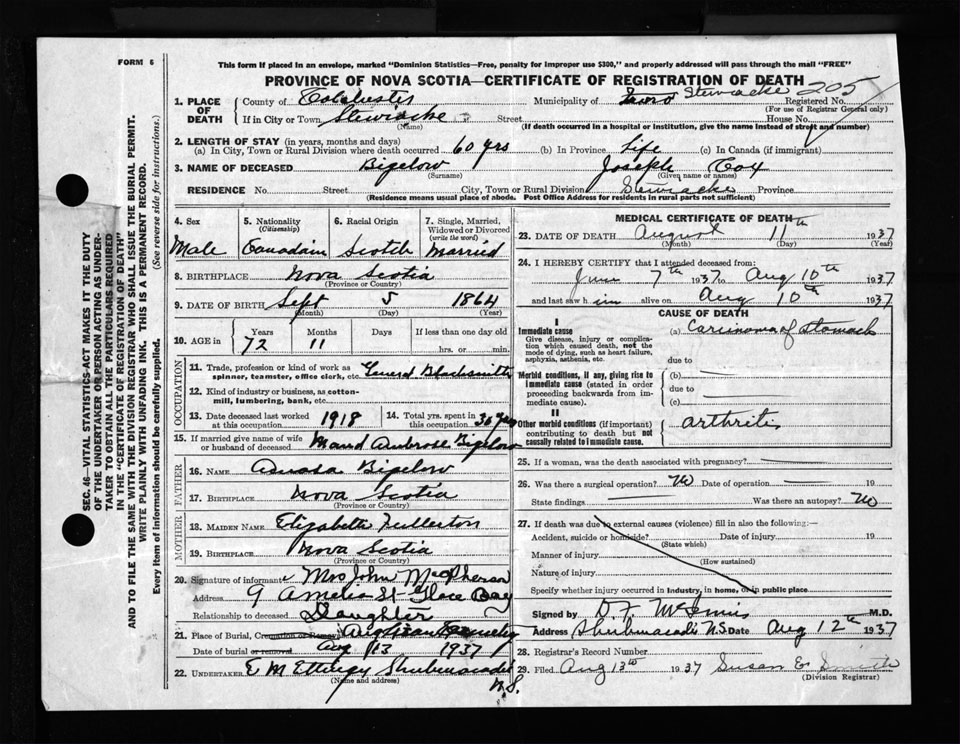 FORM 6
This form if placed in an envelope, marked "Dominion Statistics—Free, penalty for improper use $300," and properly addressed will pass through the mail "FREE"
PROVINCE OF NOVA SCOTIA—CERTIFICATE OF REGISTRATION OF DEATH
SEC. 46—VITAL STATISTICS-ACT MAKES IT THE DUTY
OF THE UNDERTAKER OR PERSON ACTING AS UNDER-
TAKER TO OBTAIN ALL THE PARTICULARS REQUIRED
IN THE "CERTIFICATE OF REGISTRATION OF DEATH"
AND TO FILE THE SAME WITH THE DIVISION REGISTRAR WHO SHALL ISSUE THE BURIAL PERMIT.
WRITE PLAINLY WITH UNFADING INK. THIS IS A PERMANENT RECORD.
Every item of information should be carefully supplied. (See reverse side for instructions.)
1. PLACE OF DEATH
County of Colchester Municipality of Truro Stewiacke Registered No. 205
(For use of Registrar General only)
If in City or Town Stewiacke Street House No.
(Name) (If death occurred in a hospital or institution, give the name instead of street and number)
2. LENGTH OF STAY (in years, months and days)
(a) In City, Town or Rural Division where death occurred 60 yrs (b) In Province Life (c) In Canada (if immigrant)
3. NAME OF DECEASED Bigelow Joseph Cox
(Surname) (Given name or names)
RESIDENCE No. Street City, Town or Rural Division Stewiacke Province
(Residence means usual place of abode. Post Office Address for residents in rural parts not sufficient)
4. Sex Male
5. Nationality (Citizenship) Canadain
6. Racial Origin Scotch
7. Single, Married, Widowed or Divorced (write the word) Married
8. BIRTHPLACE Nova Scotia
(Province or Country)
9. DATE OF BIRTH Sept 5 1864
(Month) (Day) (Year)
10. AGE in Years 72 Months 11 Days If less than one day old hrs. or min.
OCCUPATION
11. Trade, profession or kind of work as spinner, teamster, office clerk, etc. General Blacksmith
12. Kind of industry or business, as cotton-mill, lumbering, bank, etc.
13. Date deceased last worked at this occupation 1918
14. Total yrs. spent in this occupation 30 yrs
15. If married give name of wife or husband of deceased Maud Ambrose Bigelow
FATHER
16. NAME Bigelow
17. BIRTHPLACE Nova Scotia
(Province or Country)
MOTHER
18. MAIDEN NAME Elizabeth Fullerton
19. BIRTHPLACE Nova Scotia
(Province or Country)
20. Signature of informant Mrs John MacPherson
Address 9 Amelia St Glace Bay
Relationship to deceased Daughter
21. Place of Burial, Cremation or Removal
Date of burial or removal Aug 13 1937
22. UNDERTAKER E M Ettinger Shubenacadie N.S.
(Name and address)
MEDICAL CERTIFICATE OF DEATH
23. DATE OF DEATH August 11th 1937
(Month) (Day) (Year)
24. I HEREBY CERTIFY that I attended deceased from:
June 7th 1937 to Aug 10th 1937
and last saw him alive on Aug 10th 1937
CAUSE OF DEATH
I
Immediate cause
Give disease, injury or complication which caused death, not the mode of dying, such as heart failure, asphyxia, asthenia, etc.
(a) Carcinoma of stomach
due to
Morbid conditions, if any, giving rise to immediate cause (stated in order proceeding backwards from immediate cause).
(b)
due to
(c)
II
Other morbid conditions (if important) contributing to death but not causally related to immediate cause.
arthritis
25. If a woman, was the death associated with pregnancy?
26. Was there a surgical operation? No Date of operation 19
State findings Was there an autopsy? No
27. If death was due to external causes (violence) fill in also the following:—
Accident, suicide or homicide? Date of injury 19
(State which)
Manner of injury
(How sustained)
Nature of injury
Specify whether injury occurred in industry, in home, or in public place
Signed by D. F. McInnis M.D.
Address Shubenacadie N.S. Date Aug 12th 1937
28. Registrar's Record Number
29. Filed Aug 13th 1937 Susan E Smith
(Division Registrar)